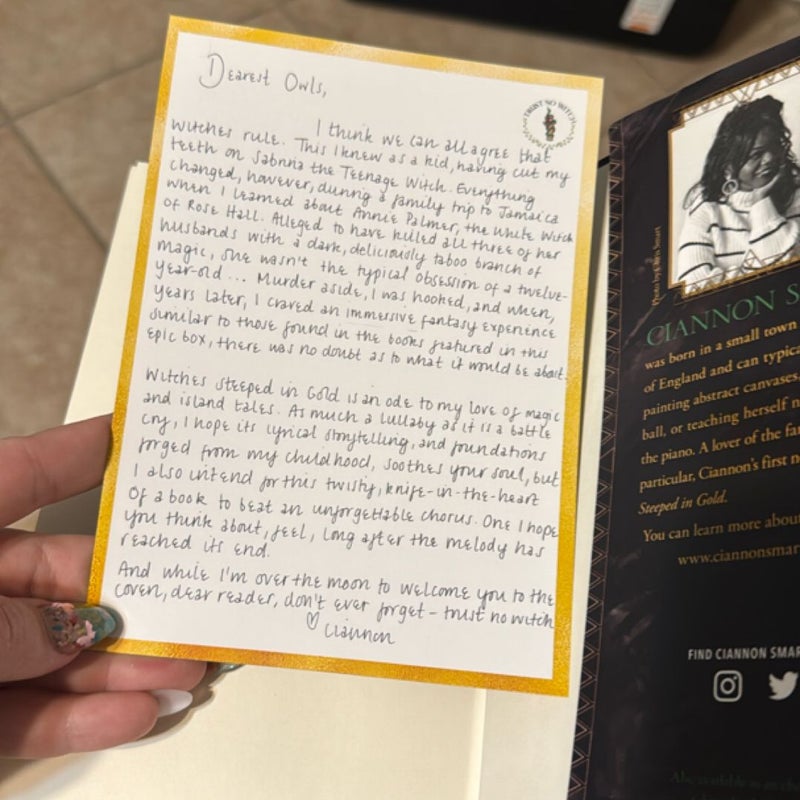 Dearest Owls,
TRUST NO WITCH
I think we can all agree that
witches rule. This I knew as a kid, having cut my
teeth on Sabrina the Teenage Witch. Everything
changed, however, during a family trip to Jamaica
when I learned about Annie Palmer, the White Witch
of Rose Hall. Alleged to have killed all three of her
husbands with a dark, deliciously taboo branch of
magic, she wasn't the typical obsession of a twelve-
year-old... Murder aside, I was hooked, and when,
years later, I craved an immersive fantasy experience
similar to those found in the books featured in this
epic box, there was no doubt as to what it would be about.
Witches steeped in Gold is an ode to my love of magic
and island tales. As much a lullaby as it is a battle
cry, I hope its lyrical storytelling, and foundations
forged from my childhood, soothes your soul, but
I also intend for this twisty, knife-in-the-heart
of a book to beat an unforgettable chorus. One I hope
you think about, feel, long after the melody has
reached its end.
And while I'm over the moon to welcome you to the
coven, dear reader, don't ever forget - trust no witch
♡ Ciannon
Smart
CIANNON S
was born in a small town
of England and can typica
painting abstract canvases,
ball, or teaching herself n
the piano. A lover of the fan
particular, Ciannon's first n
Steeped in Gold.
You can learn more abou
www.ciannonsmar
FIND CIANNON SMAR